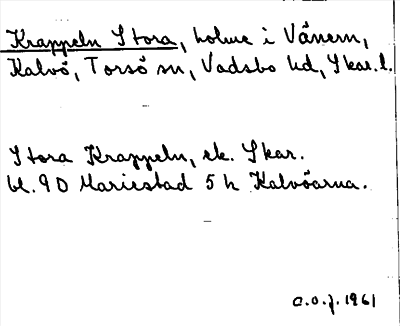 Krappeln Stora, holme i Vänern,
Kalvö, Torsö sn, Vadsbo hd, Skar. l.
Stora Krappeln, ek. Skar.
bl. 90 Mariestad 5 h Kalvöarna.
a.o.j. 1961